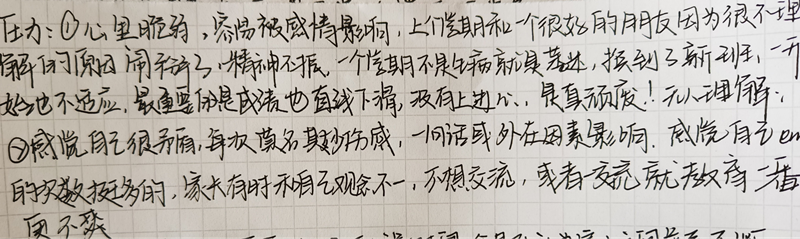 压力:①心里脆弱,容易被感情影响,上个学期和一个很好的朋友因为很不理
解的原因闹矛盾了,精神不振,一个学期不是生病就是萎迷,换到了新班,一开
始也不适应,最重要的是成绩也直线下滑,没有上进心,是真颓废!无人理解;
②感觉自己很矛盾,每次莫名其妙伤感,一句话或外在因素影响.感觉自己en
的次数挺多的,家长有时和自己观念不一,不想交流,或者一交流就教育一番
更不爽